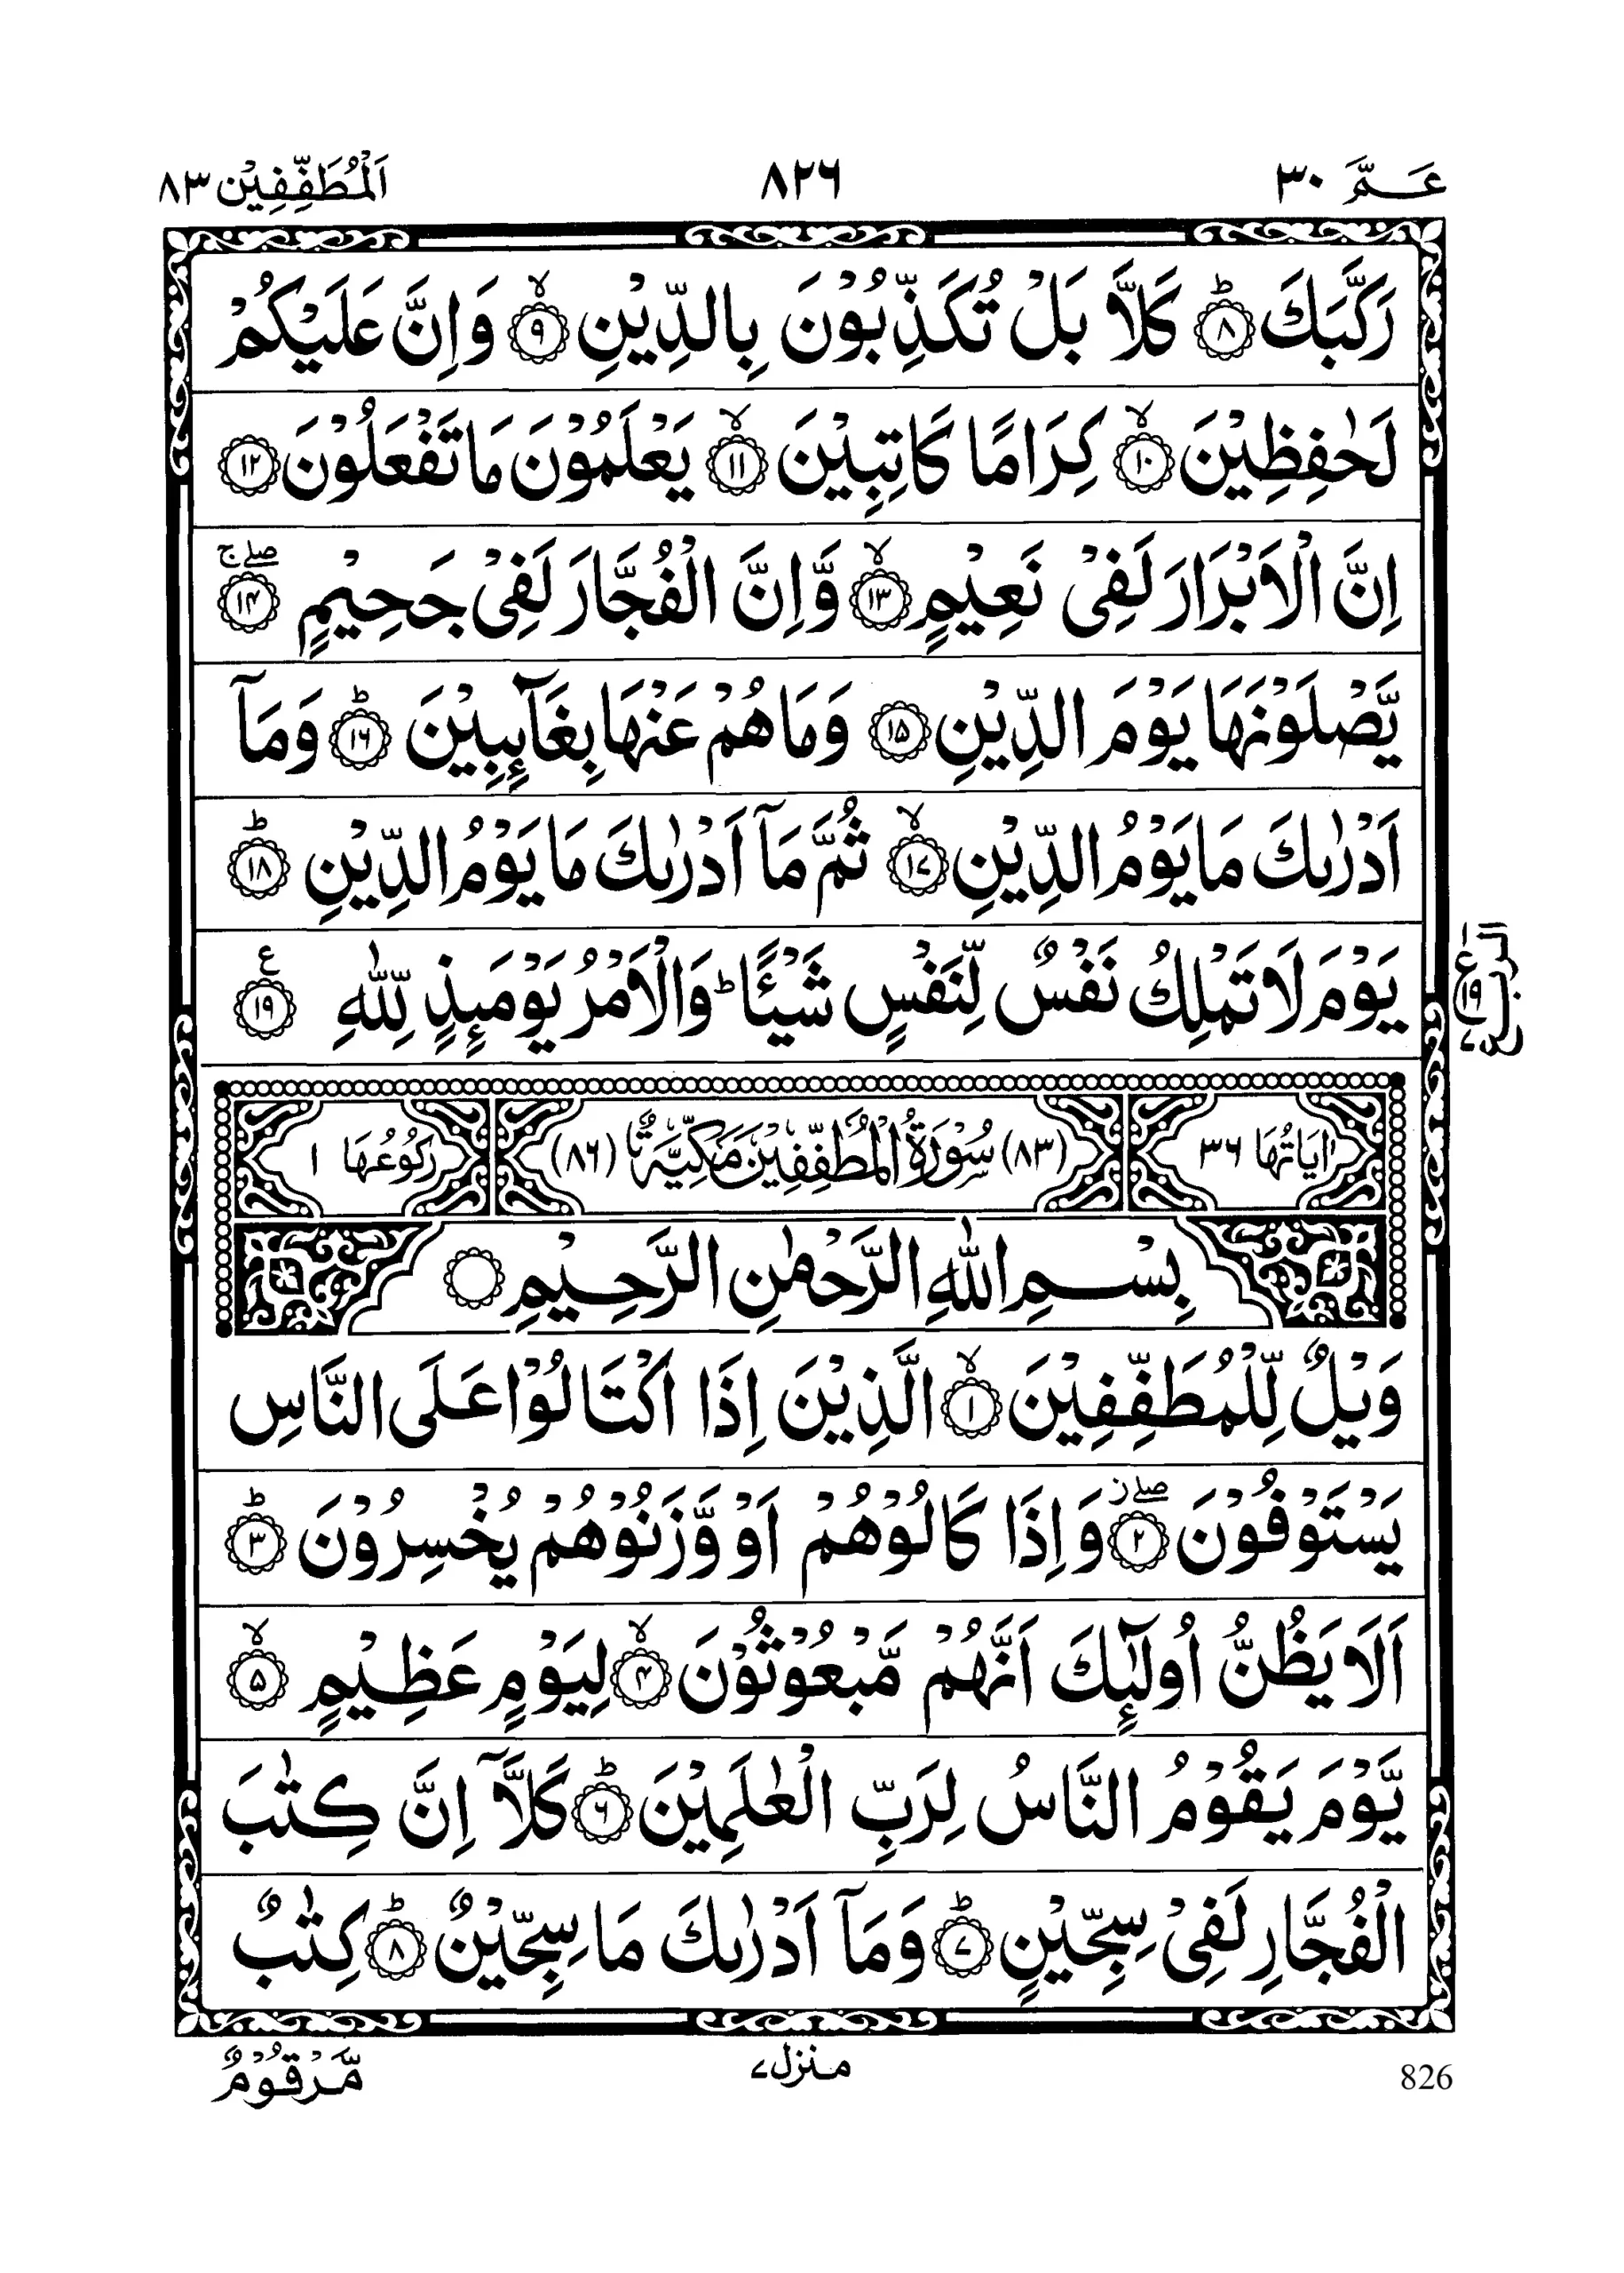 عَـمَّ ۳۰
۸۲۶
اَلْمُطَفِّفِيْن ۸۳
رَكَّبَكَ ؕ﴿۸﴾ كَلَّا بَلْ تُكَذِّبُوْنَ بِالدِّيْنِ ۙ﴿۹﴾ وَاِنَّ عَلَيْكُمْ
لَحٰفِظِيْنَ ۙ﴿۱۰﴾ كِرَامًا كَاتِبِيْنَ ۙ﴿۱۱﴾ يَعْلَمُوْنَ مَا تَفْعَلُوْنَ ﴿۱۲﴾
اِنَّ الْاَبْرَارَ لَفِيْ نَعِيْمٍ ۙ﴿۱۳﴾ وَّاِنَّ الْفُجَّارَ لَفِيْ جَحِيْمٍ ۖۚ﴿۱۴﴾
يَّصْلَوْنَهَا يَوْمَ الدِّيْنِ ﴿۱۵﴾ وَمَا هُمْ عَنْهَا بِغَآىِٕبِيْنَ ؕ﴿۱۶﴾ وَمَآ
اَدْرٰىكَ مَا يَوْمُ الدِّيْنِ ۙ﴿۱۷﴾ ثُمَّ مَآ اَدْرٰىكَ مَا يَوْمُ الدِّيْنِ ؕ﴿۱۸﴾
يَوْمَ لَا تَمْلِكُ نَفْسٌ لِّنَفْسٍ شَيْـًٔا ؕ وَالْاَمْرُ يَوْمَىِٕذٍ لِّلّٰهِ ﴿۱۹﴾ ع
الربع
ع ۱۹ ۷
اٰيَاتُهَا ۳۶
(۸۳) سُوْرَةُ الْمُطَفِّفِيْنَ مَكِّيَّةٌ (۸۶)
رُكُوْعُهَا ۱
بِسْـمِ اللّٰهِ الرَّحْمٰنِ الرَّحِيْمِ
وَيْلٌ لِّلْمُطَفِّفِيْنَ ۙ﴿۱﴾ الَّذِيْنَ اِذَا اكْتَالُوْا عَلَى النَّاسِ
يَسْتَوْفُوْنَ ۖؗ﴿۲﴾ وَاِذَا كَالُوْهُمْ اَوْ وَّزَنُوْهُمْ يُخْسِرُوْنَ ؕ﴿۳﴾
اَلَا يَظُنُّ اُولٰٓىِٕكَ اَنَّهُمْ مَّبْعُوْثُوْنَ ۙ﴿۴﴾ لِيَوْمٍ عَظِيْمٍ ۙ﴿۵﴾
يَّوْمَ يَقُوْمُ النَّاسُ لِرَبِّ الْعٰلَمِيْنَ ؕ﴿۶﴾ كَلَّآ اِنَّ كِتٰبَ
الْفُجَّارِ لَفِيْ سِجِّيْنٍ ؕ﴿۷﴾ وَمَآ اَدْرٰىكَ مَا سِجِّيْنٌ ؕ﴿۸﴾ كِتٰبٌ
826
منزل ۷
مَّرْقُوْمٌ